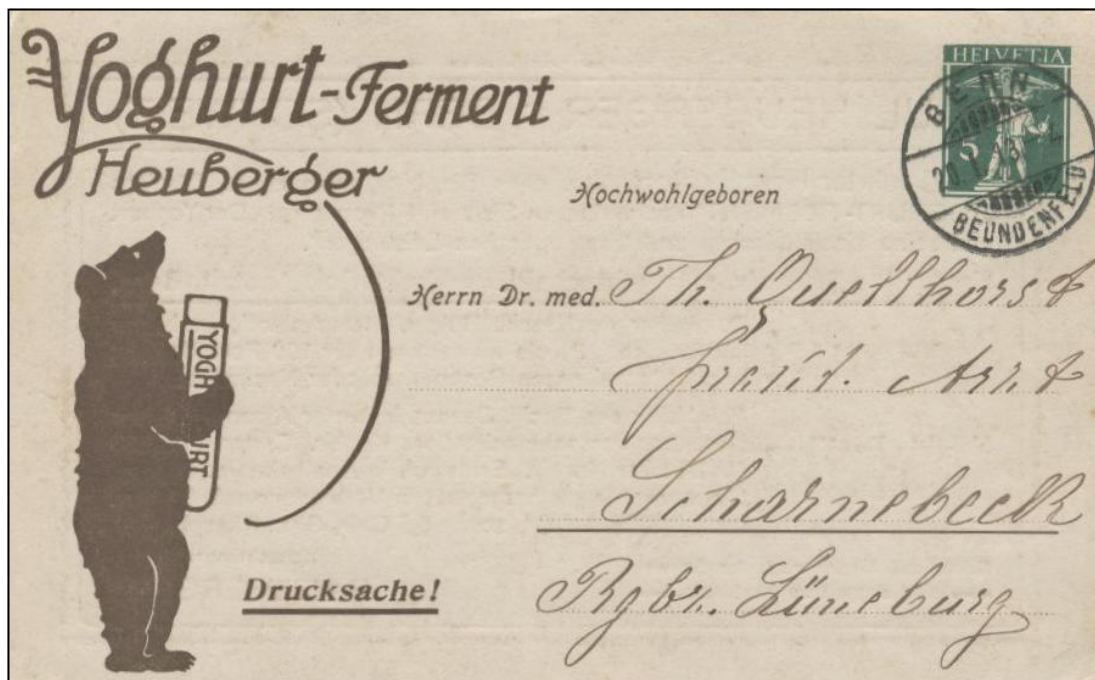 Yoghurt-Ferment
Heuberger
HELVETIA
5
BERN
BEUNDENFELD
YOGH
URT
Hochwohlgeboren
Herrn Dr. med. Th. Quellhorst
prakt. Arzt
Scharnebeck
Rgbz. Lüneburg
Drucksache!